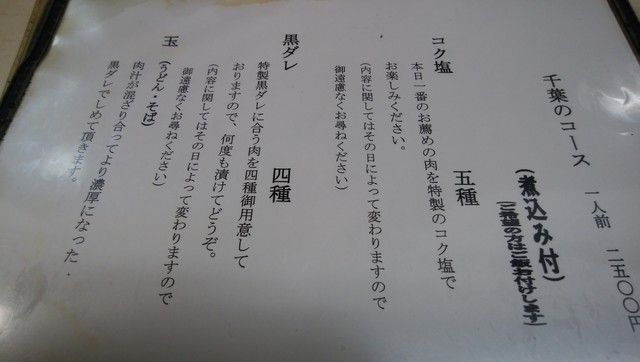 千葉のコース　一人前　二五〇〇円
(煮込み付)
(ご希望の方はご飯お付けします)
コク塩　五種
本日一番のお薦めの肉を特製のコク塩で
お楽しみください。
(内容に関してはその日によって変わりますので
御遠慮なくお尋ねください)
黒ダレ　四種
特製黒ダレに合う肉を四種御用意して
おりますので、何度も漬けてどうぞ。
(内容に関してはその日によって変わりますので
御遠慮なくお尋ねください)
玉　(うどん・そば)
肉汁が混ざり合ってより濃厚になった・
黒ダレでしめて頂きます。